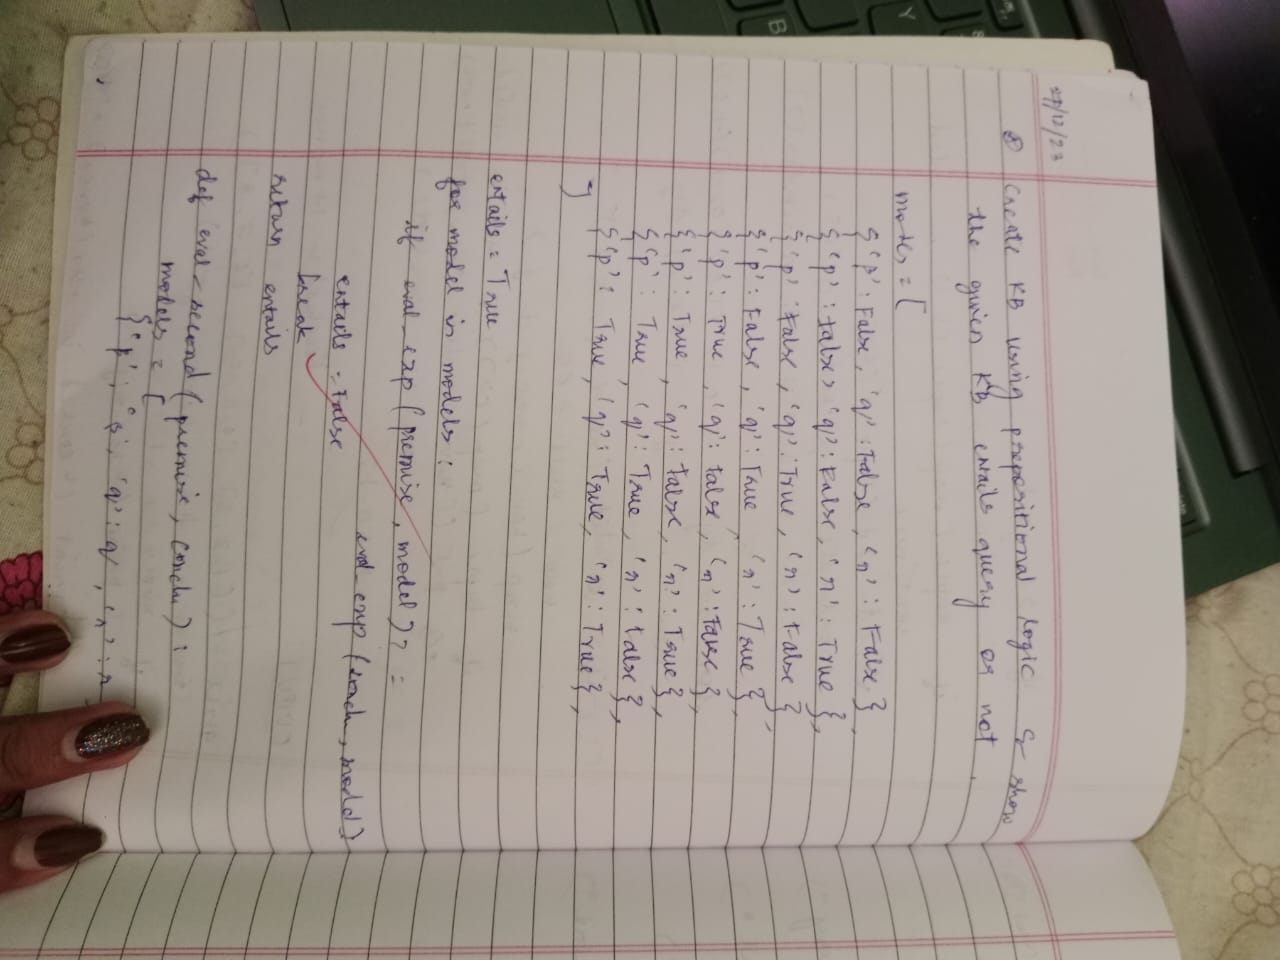 27/12/23
8) Create KB using propositional logic & show
the given KB entails query or not.
models = [
{'p': False, 'q': False, 'r': False},
{'p': False, 'q': False, 'r': True},
{'p': False, 'q': True, 'r': False},
{'p': False, 'q': True, 'r': True},
{'p': True, 'q': False, 'r': False},
{'p': True, 'q': False, 'r': True},
{'p': True, 'q': True, 'r': False},
{'p': True, 'q': True, 'r': True},
]
entails = True
for model in models:
if eval_exp (premise, model) ? =
eval_exp (conclu, model)
entails = False
break
return entails
def eval_second (premise, conclu):
models = [
{'p': 'p', 'q': q, 'r': r
B
Y